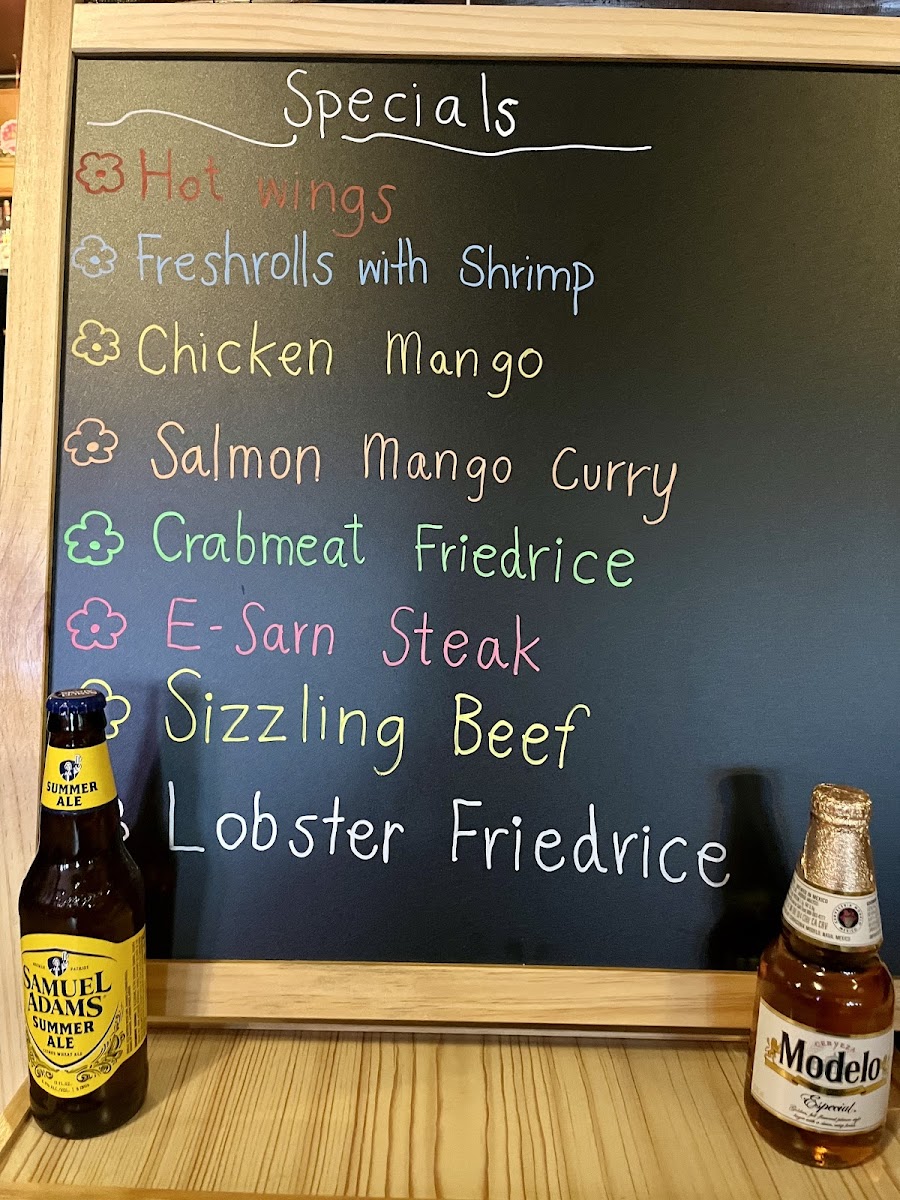 Specials
Hot wings
Freshrolls with Shrimp
Chicken Mango
Salmon Mango Curry
Crabmeat Friedrice
E-Sarn Steak
Sizzling Beef
Lobster Friedrice
SUMMER
ALE
SAMUEL
ADAMS
SUMMER
ALE
CERVEZA
Modelo
Especial